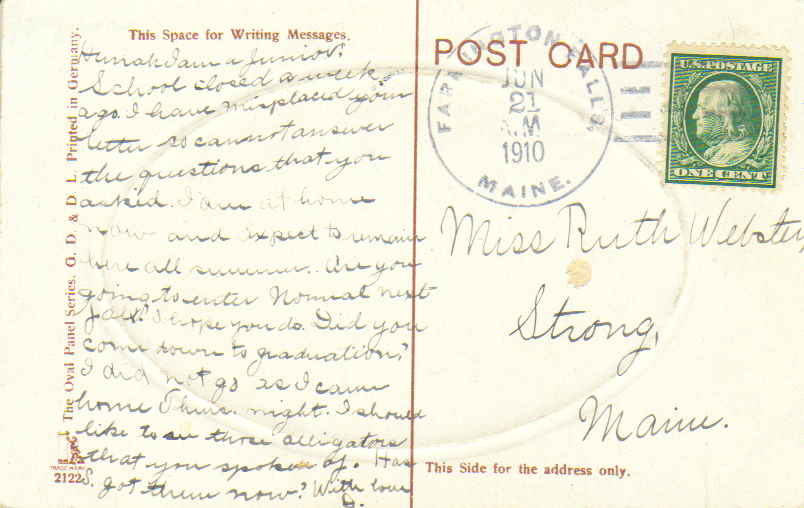 This Space for Writing Messages.
Hurrah I am a Junior.
School closed a week
ago. I have misplaced your
letter so cannot answer
the questions that you
asked. I am at home
now and expect to remain
here all summer. Are you
going to enter Normal next
fall? I hope you do. Did you
come down to graduation?
I did not go as I came
home Thurs. night. I should
like to see those alligators
that you spoken of. Has
S. got them now? With love
D.
The Oval Panel Series. G. D. & D. L. Printed in Germany.
TRADE MARK
2122
POST CARD
FARMINGTON FALLS,
JUN
21
A.M
1910
MAINE.
U.S. POSTAGE
ONE CENT
Miss Ruth Webster,
Strong,
Maine.
This Side for the address only.